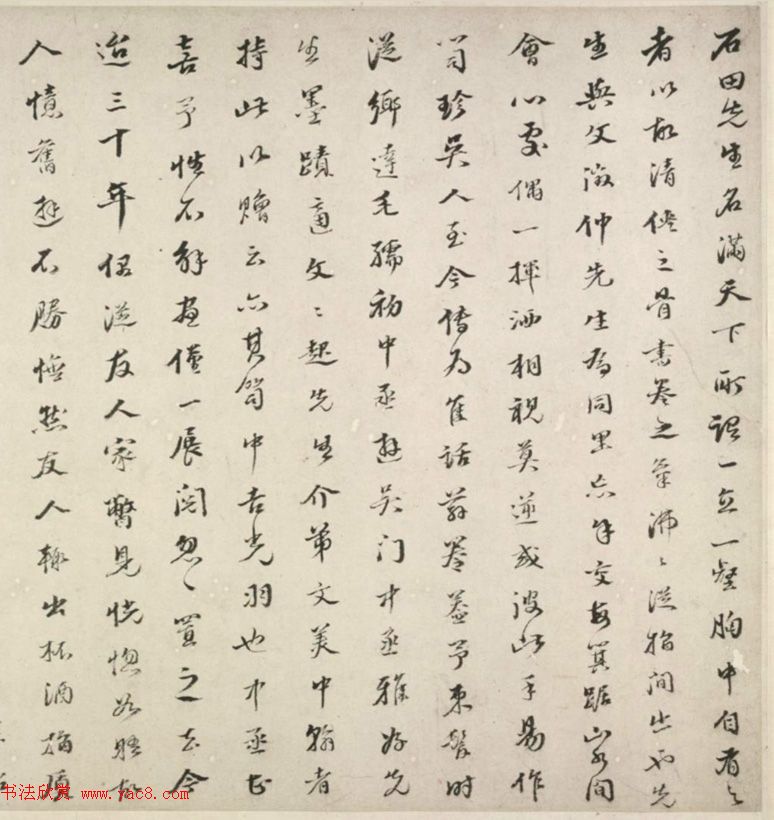 石田先生名滿天下所謂一丘一壑胸中自有之
者以故清供之骨書卷之氣沸沸從指間出也先
生與文徵仲先生為同里忘年交每箕踞山水間
會心處偶一揮洒相視莫逆或彼此手易作
笥珍吳人至今傳為佳話前卷蓋予束髮時
從鄉達毛孺初中丞遊吳門中丞雅好先
生墨蹟適文文起先生介弟文美中翰者
持此以贈云亦其笥中吉光羽也中丞甚
喜予性不解畫僅一展閱忽忽置之去今
迨三十年偶從友人家瞥見恍惚如睹故
人憶舊遊不勝悵然友人輒出杯酒摘園
书法欣赏 www.yac8.com